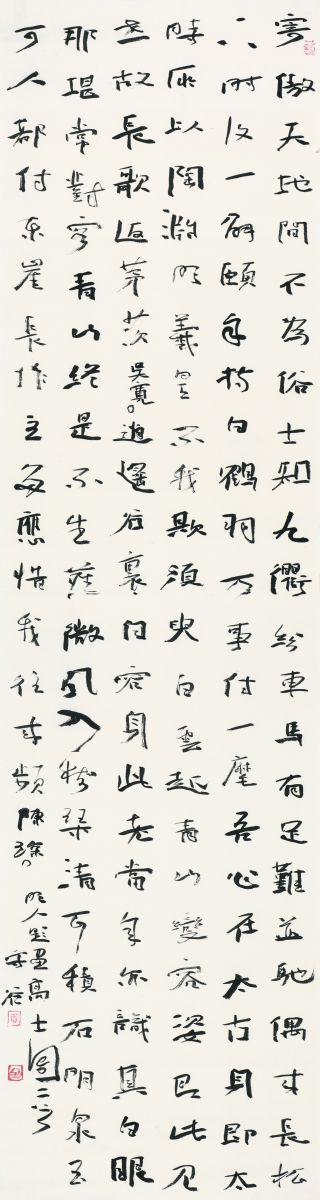 寄傲天地間不為俗士知九衢紛車馬有足難並馳偶来長松
下時復一解頤手持白鶴羽万事付一麾吾心在太古身即太
時所以陶淵明羲皇不我欺須臾白雲起青山變容姿因此見
世故長歌返茅茨吳寬。逍遙谷裏問容身此老當年亦識真白眼
那堪常對客青山終是不生塵微風入 琴清可積石明泉玉
可人都付東崖長作主也應惜我往来頻陳
明人題畫高士圖二首